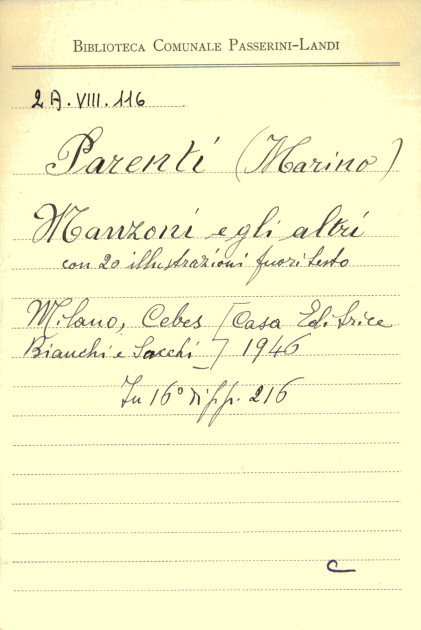 Biblioteca Comunale Passerini-Landi
2 A. VIII. 116
Parenti (Marino)
Manzoni e gli altri
con 20 illustrazioni fuori testo
Milano, Cebes [Casa Editrice
Bianchi e Sacchi] 1946
In 16° di pp. 216
C